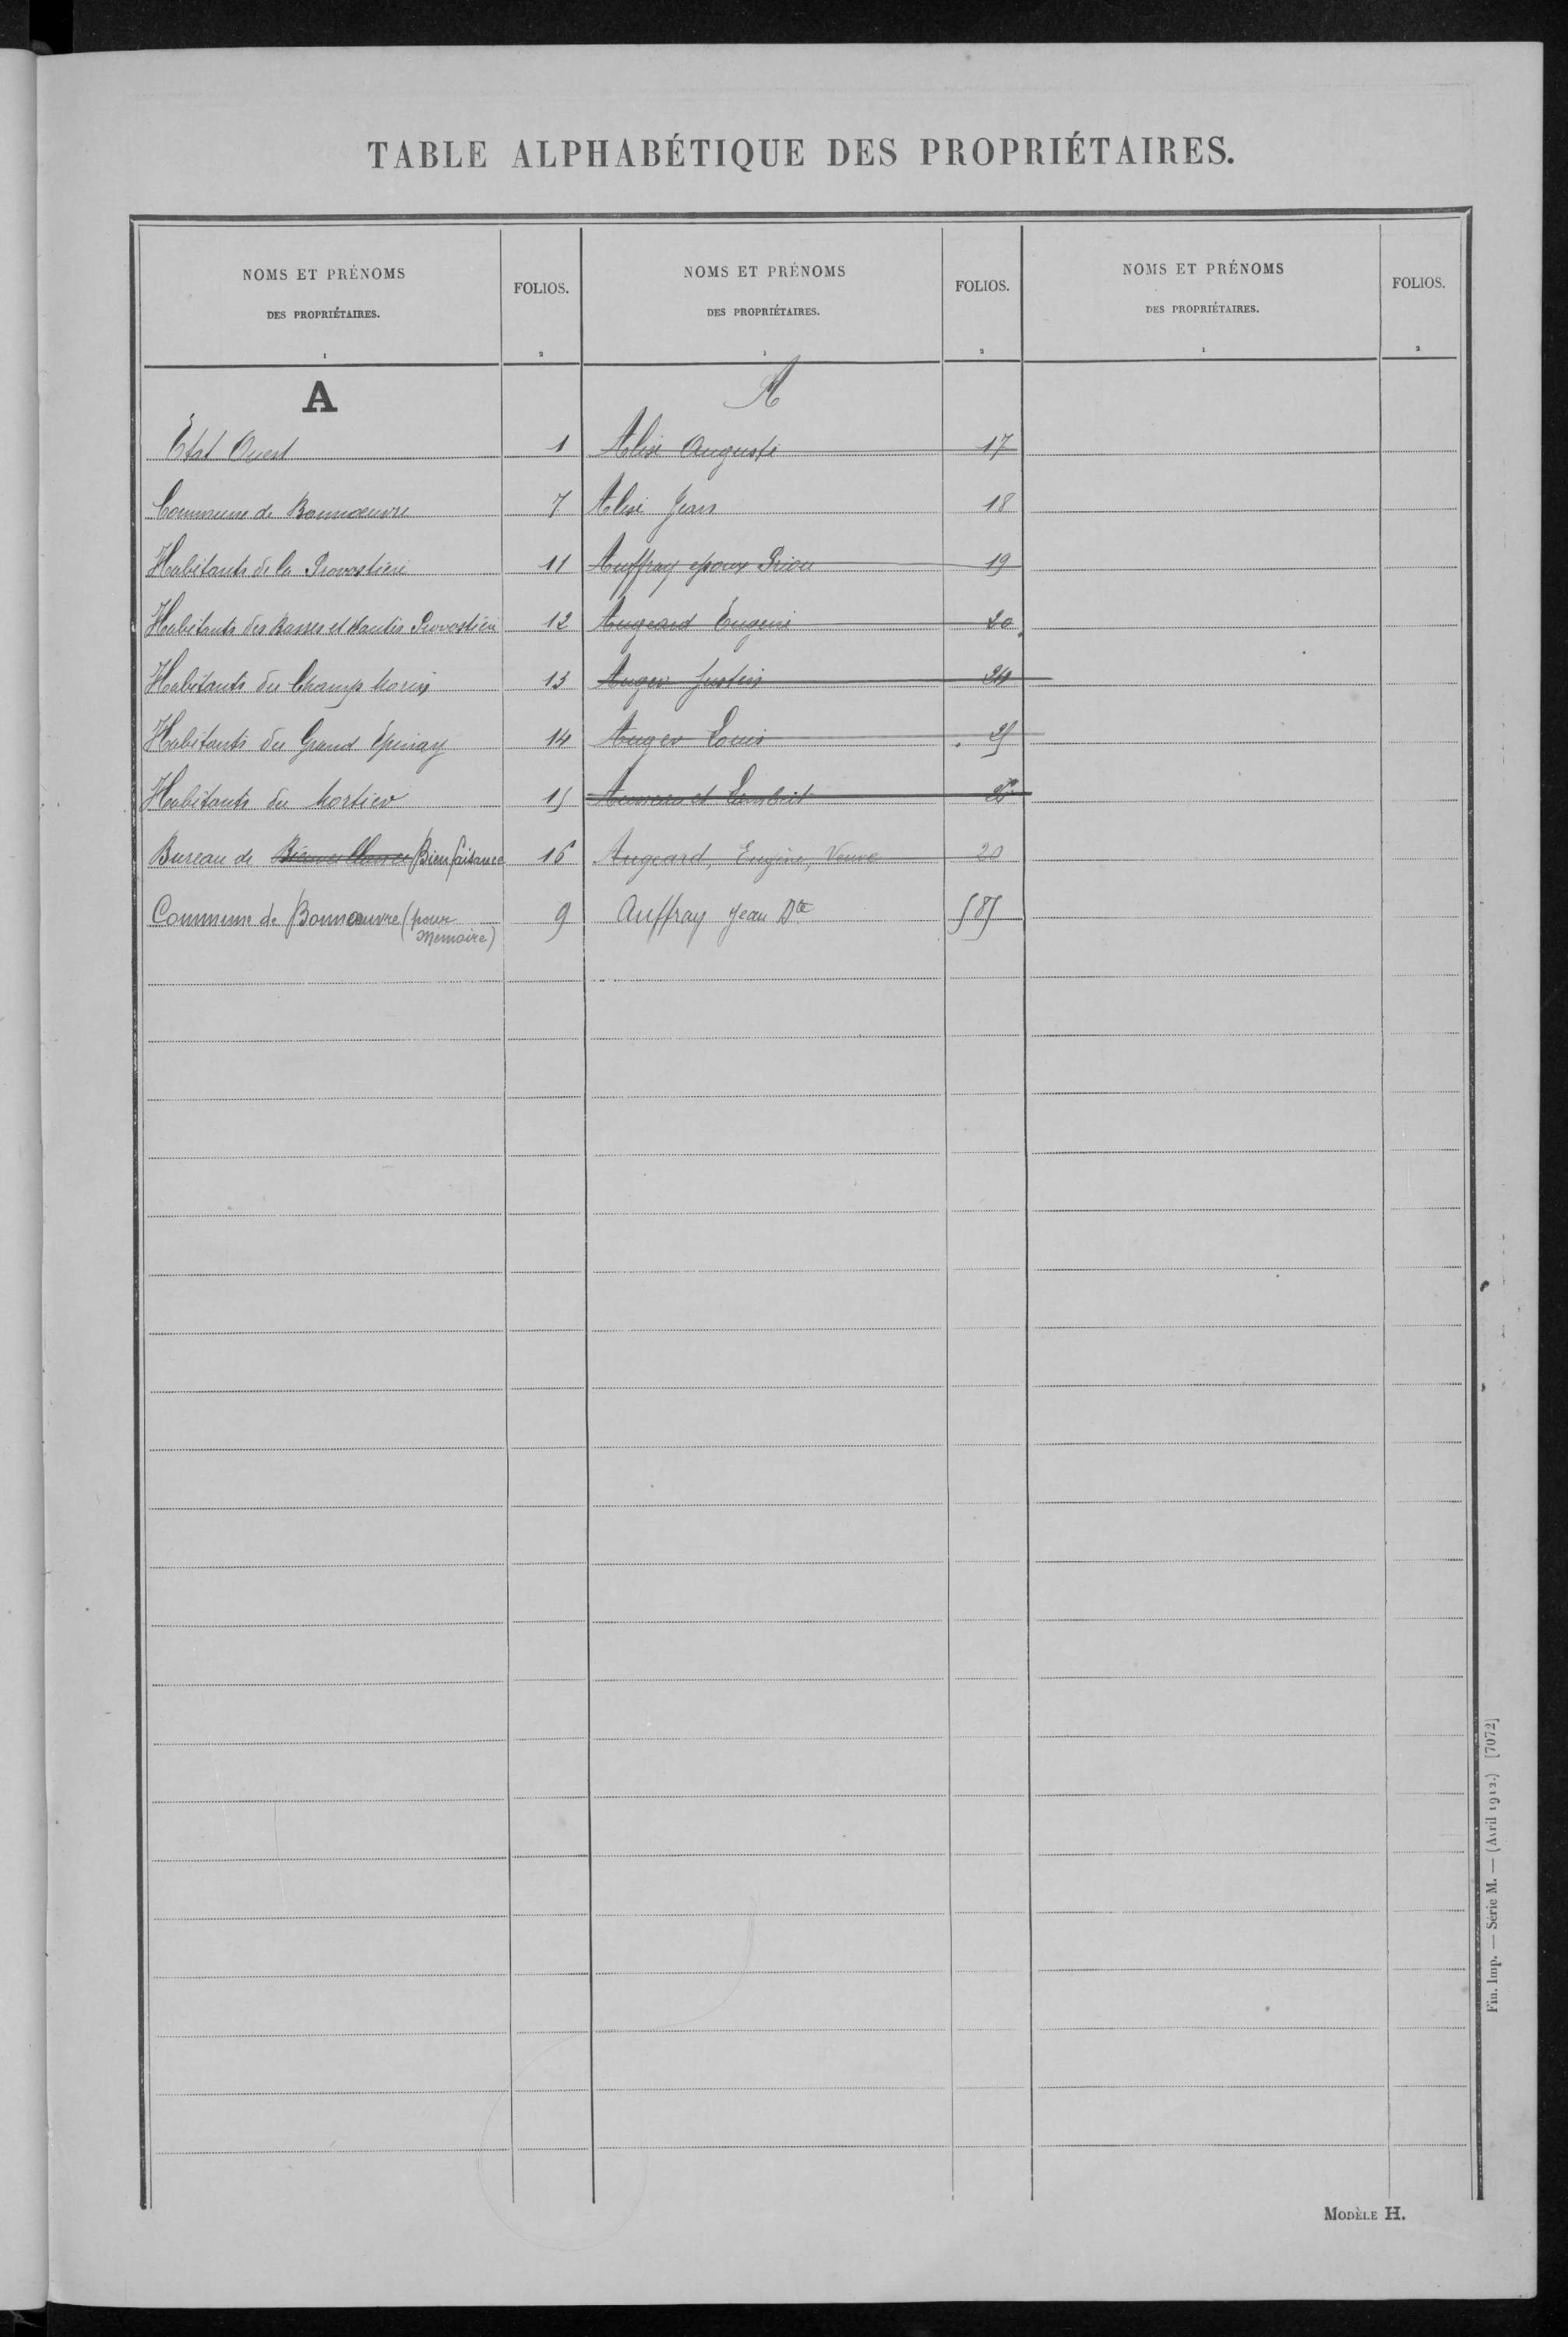 TABLE ALPHABÉTIQUE DES PROPRIÉTAIRES.
NOMS ET PRÉNOMS
DES PROPRIÉTAIRES.
1
FOLIOS.
2
NOMS ET PRÉNOMS
DES PROPRIÉTAIRES.
1
FOLIOS.
2
NOMS ET PRÉNOMS
DES PROPRIÉTAIRES.
1
FOLIOS.
2
A
État Ouest 1
Commune de Bonnoeuvre 7
Habitants de la Provostière 11
Habitants des Basses et Hautes Provostière 12
Habitants du Champ Morin 13
Habitants du Grand Épinay 14
Habitants du Mortier 15
Bureau de Bienveillance Bienfaisance 16
Commune de Bonnoeuvre (pour 9
Memoire)
A
Alise Auguste 17
Alise Jean 18
Auffray époux Priou 19
Augeard Eugène 20
Auger Justin 24
Auger Louis 25
et Lambert
Augeard, Eugène, Veuve 20
Auffray Jean Bte 585
Fin. Imp. — Série M. — (Avril 1912.) [7072]
MODÈLE H.